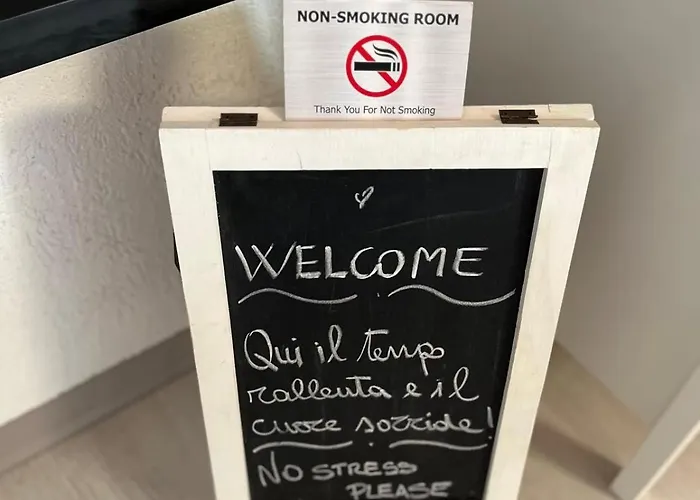 NON-SMOKING ROOM
Thank You For Not Smoking
WELCOME
Qui il tempo
rallenta e il
cuore sorride!
NO STRESS
PLEASE